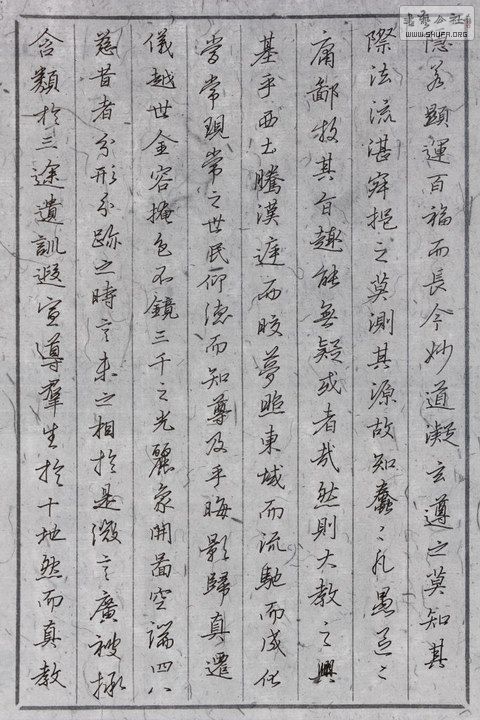 書藝公社
WWW.SHUFA.ORG
隱若顯運百福而長今妙道凝玄遵之莫知其
際法流湛寂挹之莫測其源故知蠢々凡愚區々
庸鄙投其旨趣能無疑或者哉然則大教之興
基乎西土騰漢庭而皎夢照東域而流馳而成化
當常現常之世民仰德而知尊及乎晦影歸真遷
儀越世金容掩色不鏡三千之光麗象開圖空端四八
慈昔者分形分跡之時言未之相於是微言廣被拯
含類於三途遺訓遐宣導羣生於十地然而真教